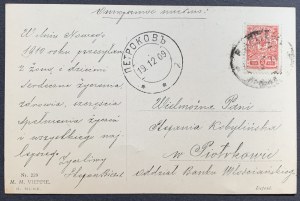 W dniu Nowego
1910 roku przesyłam
z żoną i dziećmi
serdeczne życzenia
zdrowia, szczęścia
spełnienia życzeń
i wszystkiego naj
lepszego.
ПЕТРОКОВЪ
19.12.09
Wielmożna Pani
Stefania Kobylińska
w Piotrkowie
oddział Banku Włościańskiego
Nr. 229
M. M. VIENNE